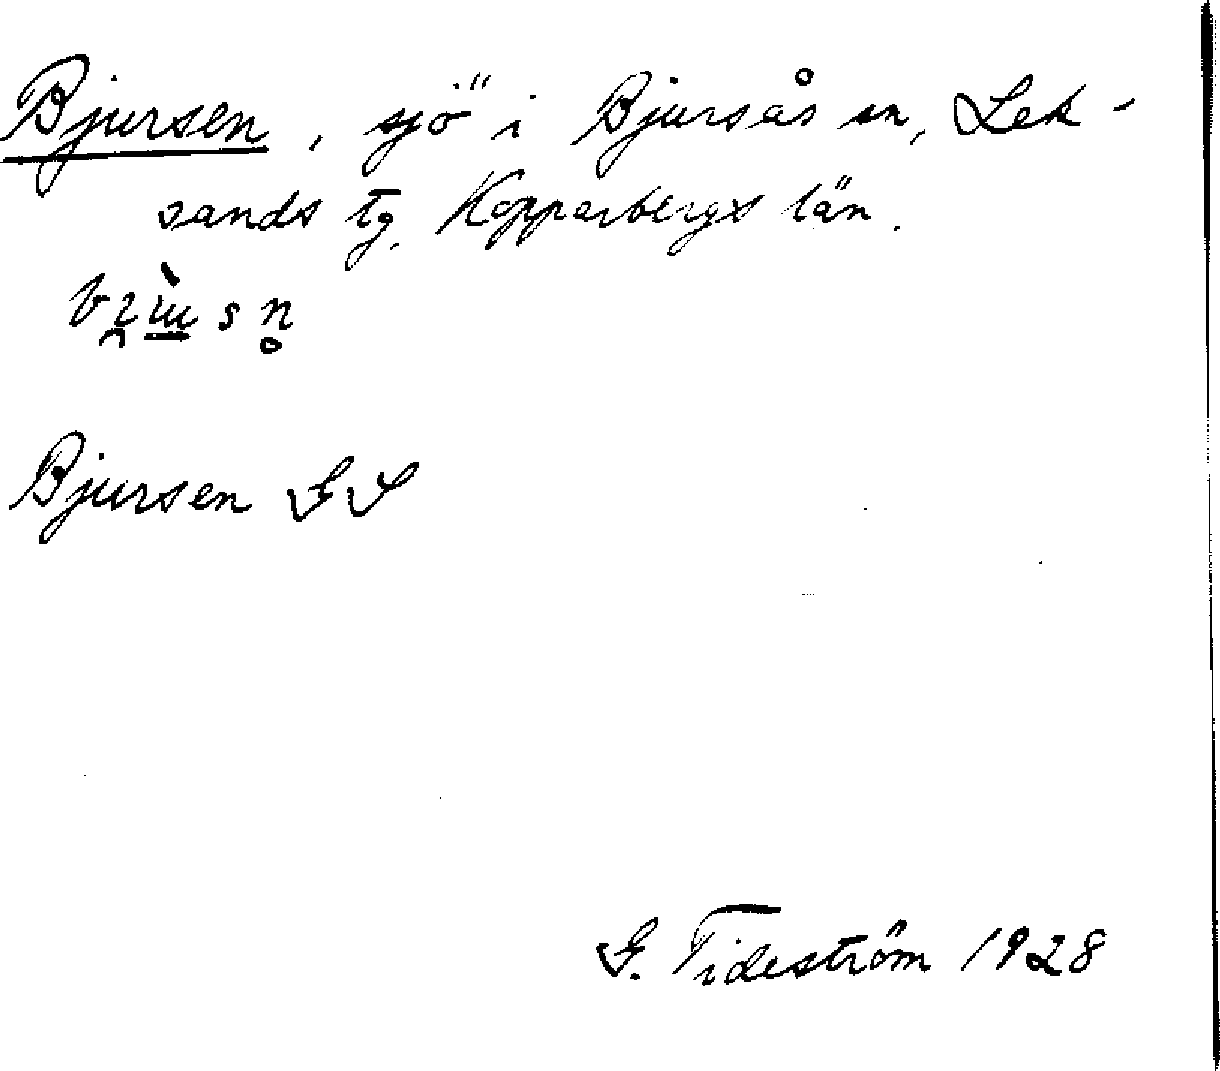 Bjursen, sjö i Bjursås sn, Lek-
sands tg, Kopparbergs län.
Bjursen
G. Tideström 1928